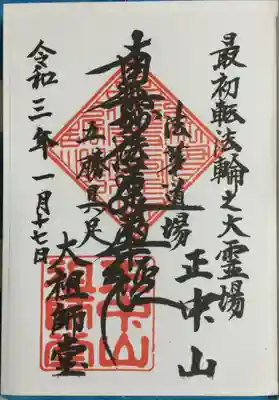 最初転法輪之大霊場
正中山
法華道場
南無妙法蓮華経
勝具足
大祖師堂
令和三年一月十七日